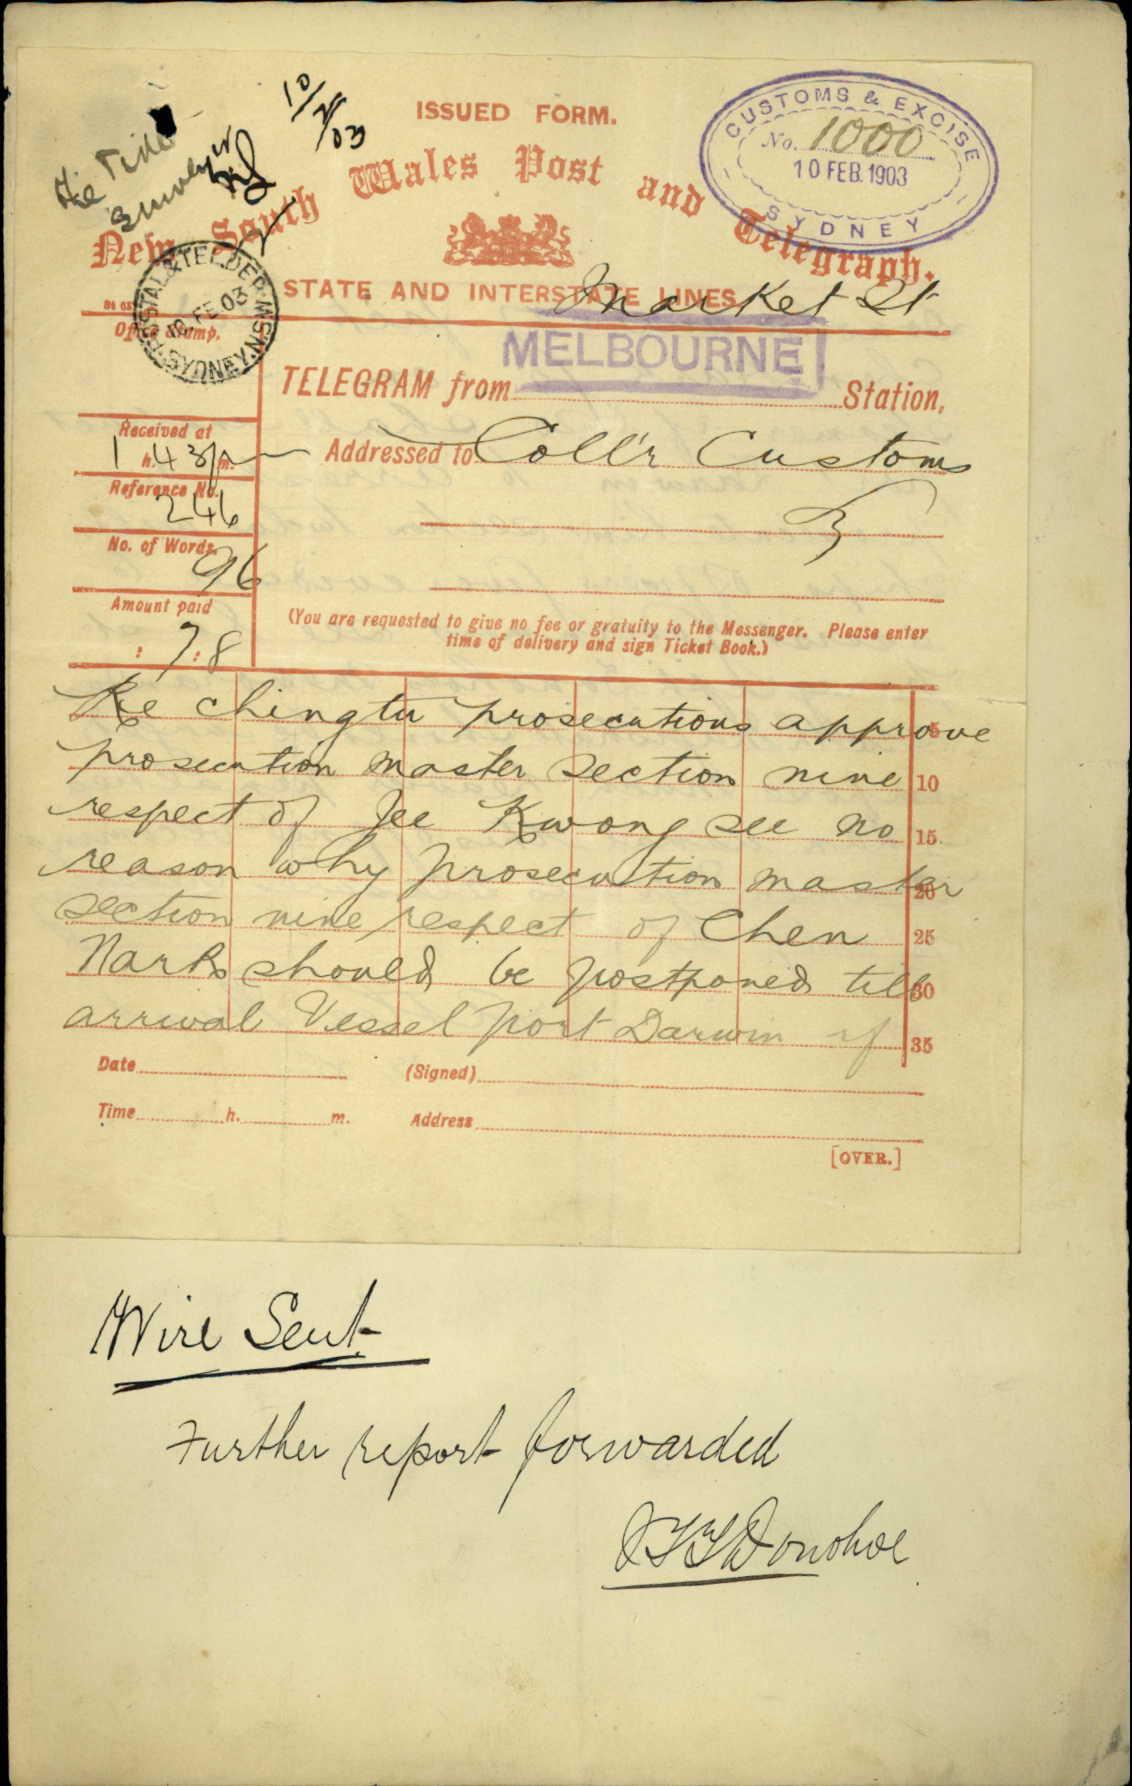 The Tide
Surveyor
10/2/03
ISSUED FORM.
CUSTOMS & EXCISE
No. 1000
10 FEB. 1903
SYDNEY
New South Wales Post and Telegraph.
STATE AND INTERSTATE LINES
Market St
POSTAL & TEL. DEP. N.S.W.
10 FE 03
SYDNEY
Office Stamp.
MELBOURNE
TELEGRAM from Station,
Received at
1 h. 43 pm.
Addressed to Coll'r Customs
Reference No.
246
No. of Words.
96
Amount paid
: 7 : 8
(You are requested to give no fee or gratuity to the Messenger. Please enter
time of delivery and sign Ticket Book.)
Re Chingtu prosecutions approve 5
prosecution master section nine 10
respect of Jee Kwong see no 15.
reason why prosecution master 20
section nine respect of Chen 25
Nark should be postponed till 30
arrival Vessel port Darwin if 35
Date (Signed)
Time h. m. Address
[OVER.]
Wire Sent
Further report forwarded
Donohoe